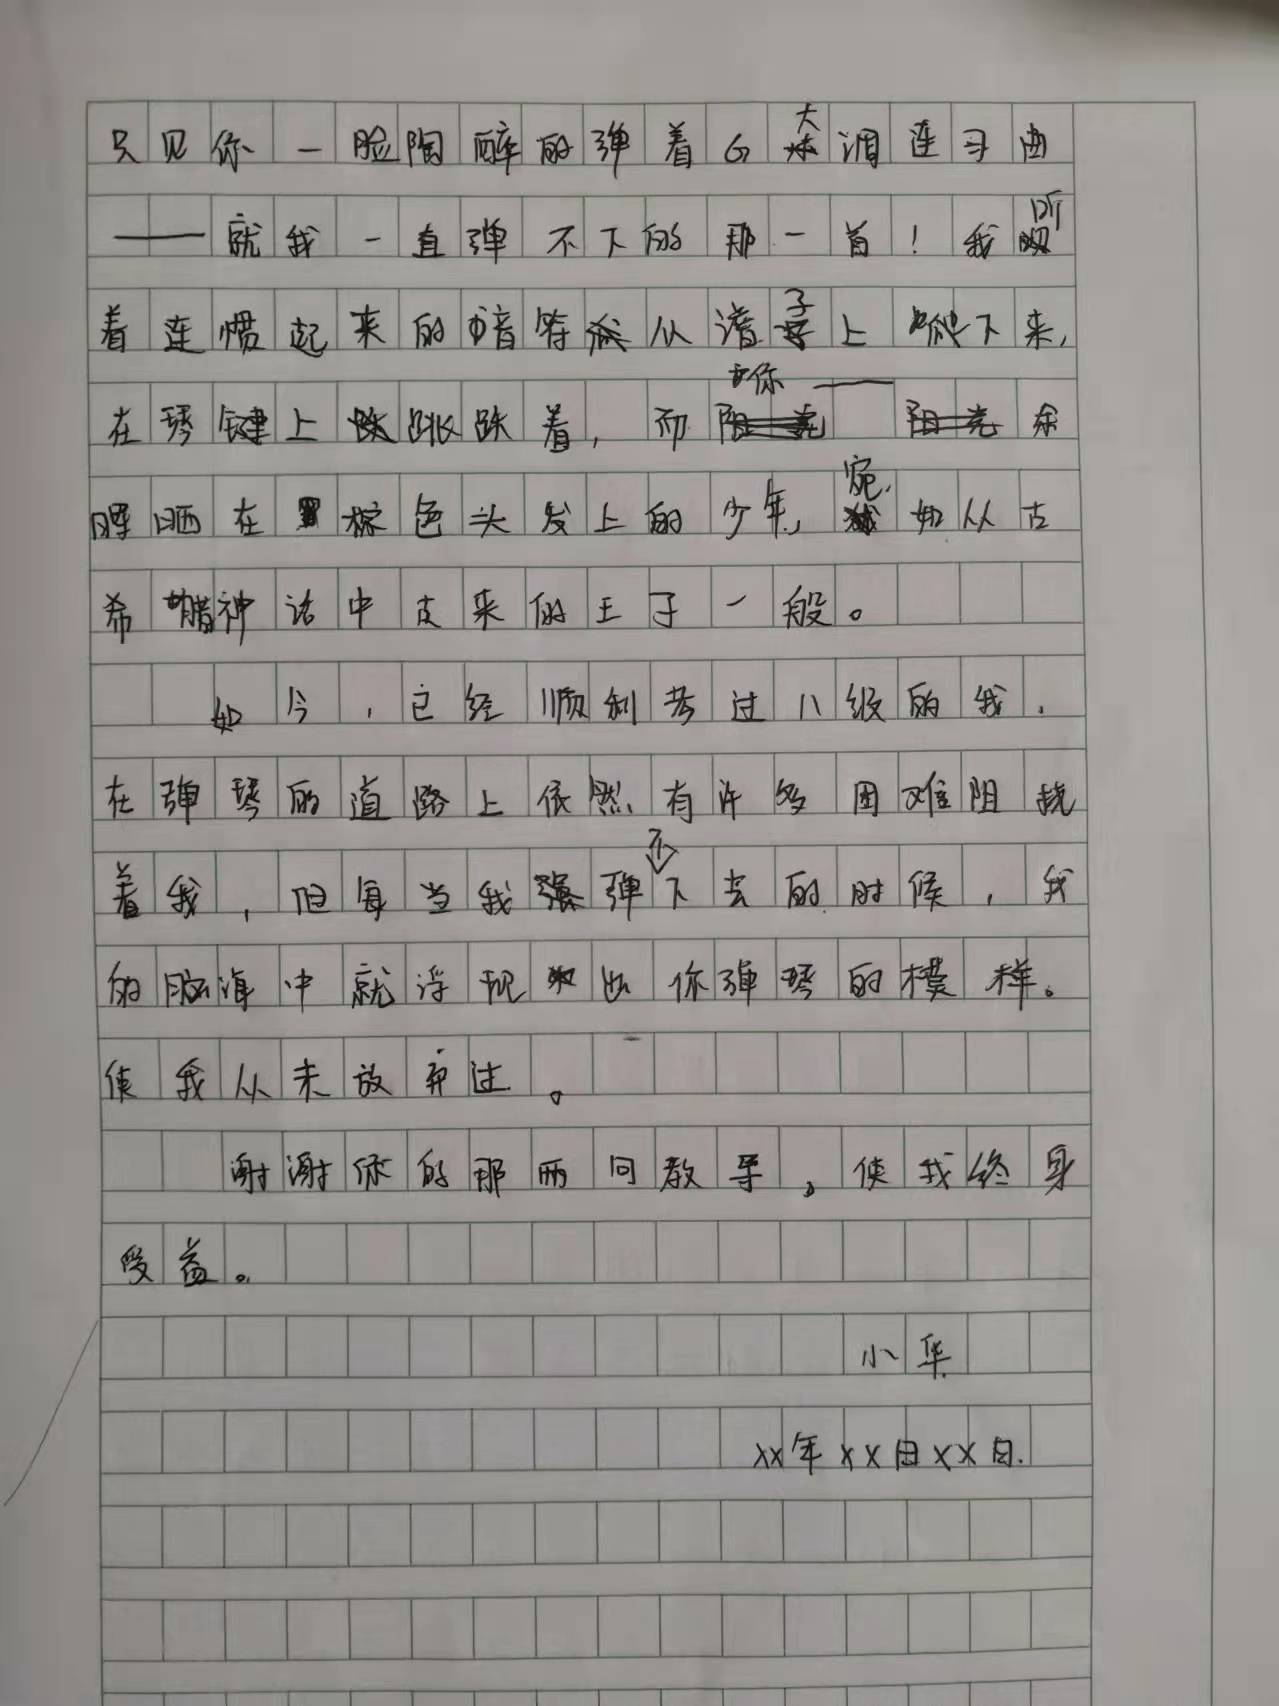 只见你一脸陶醉的弹着G大调连习曲
——就我一直弹不下的那一首！我听
着连惯起来的音符从谱子上爬下来，
在琴键上跳跃着，而你——余
晖晒在棕色头发上的少年，宛如从古
希腊神话中古来的王子一般。
如今，已经顺利考过八级的我，
在弹琴的道路上依然有许多困难阻挠
着我，但每当我弹不下去的时候，我
的脑海中就浮现出你弹琴的模样。
使我从未放弃过。
谢谢你的那两问教导，使我终身
受益。
小华
XX年XX日XX日.